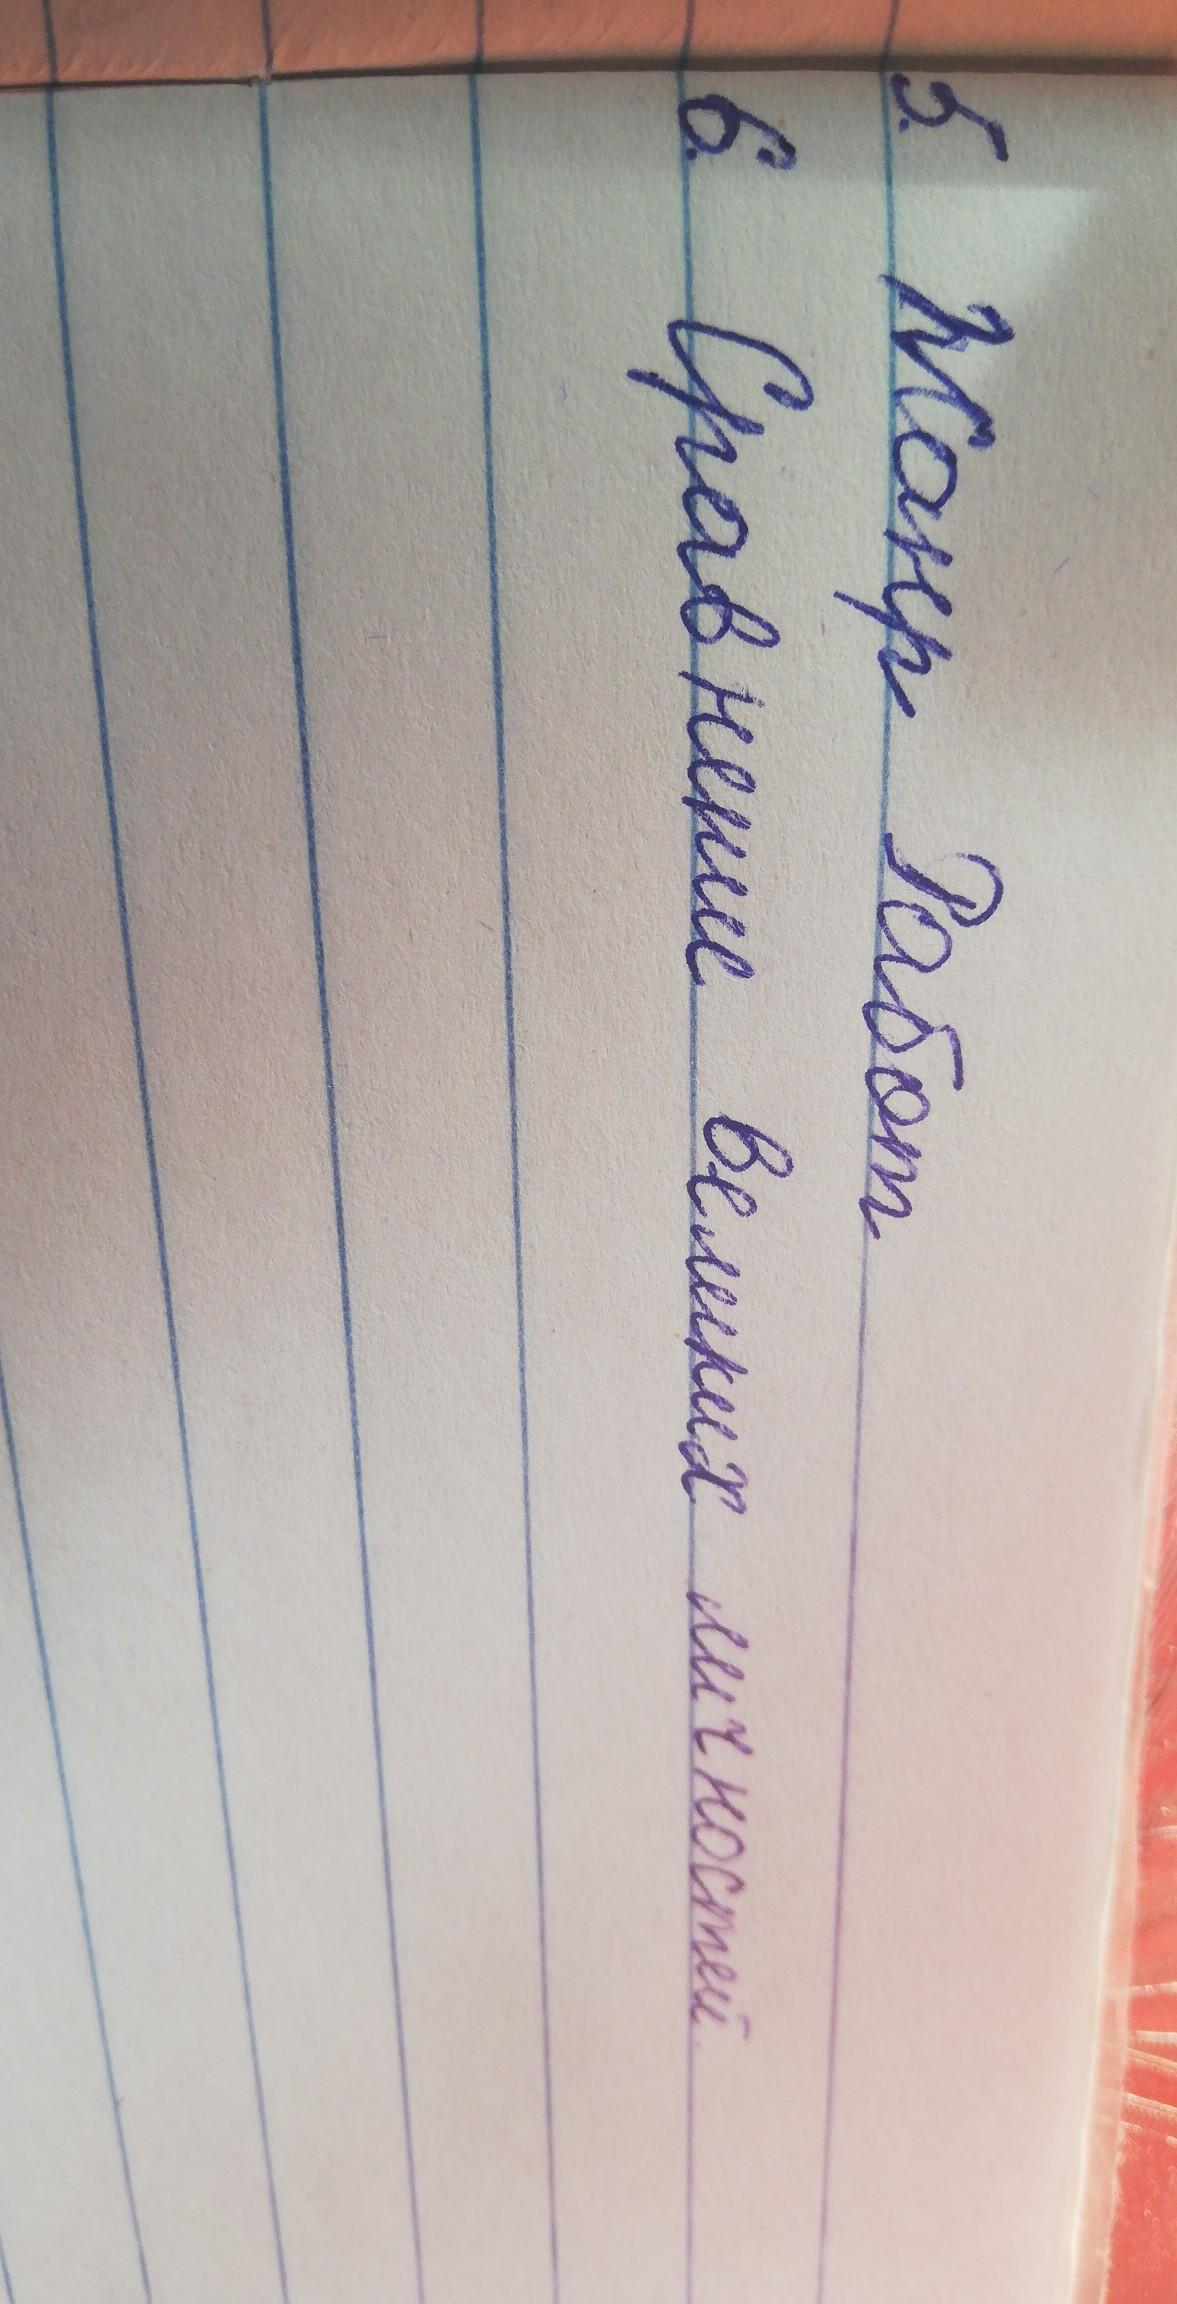 5. Жанр Работ
6. Сравнение великих личностей.